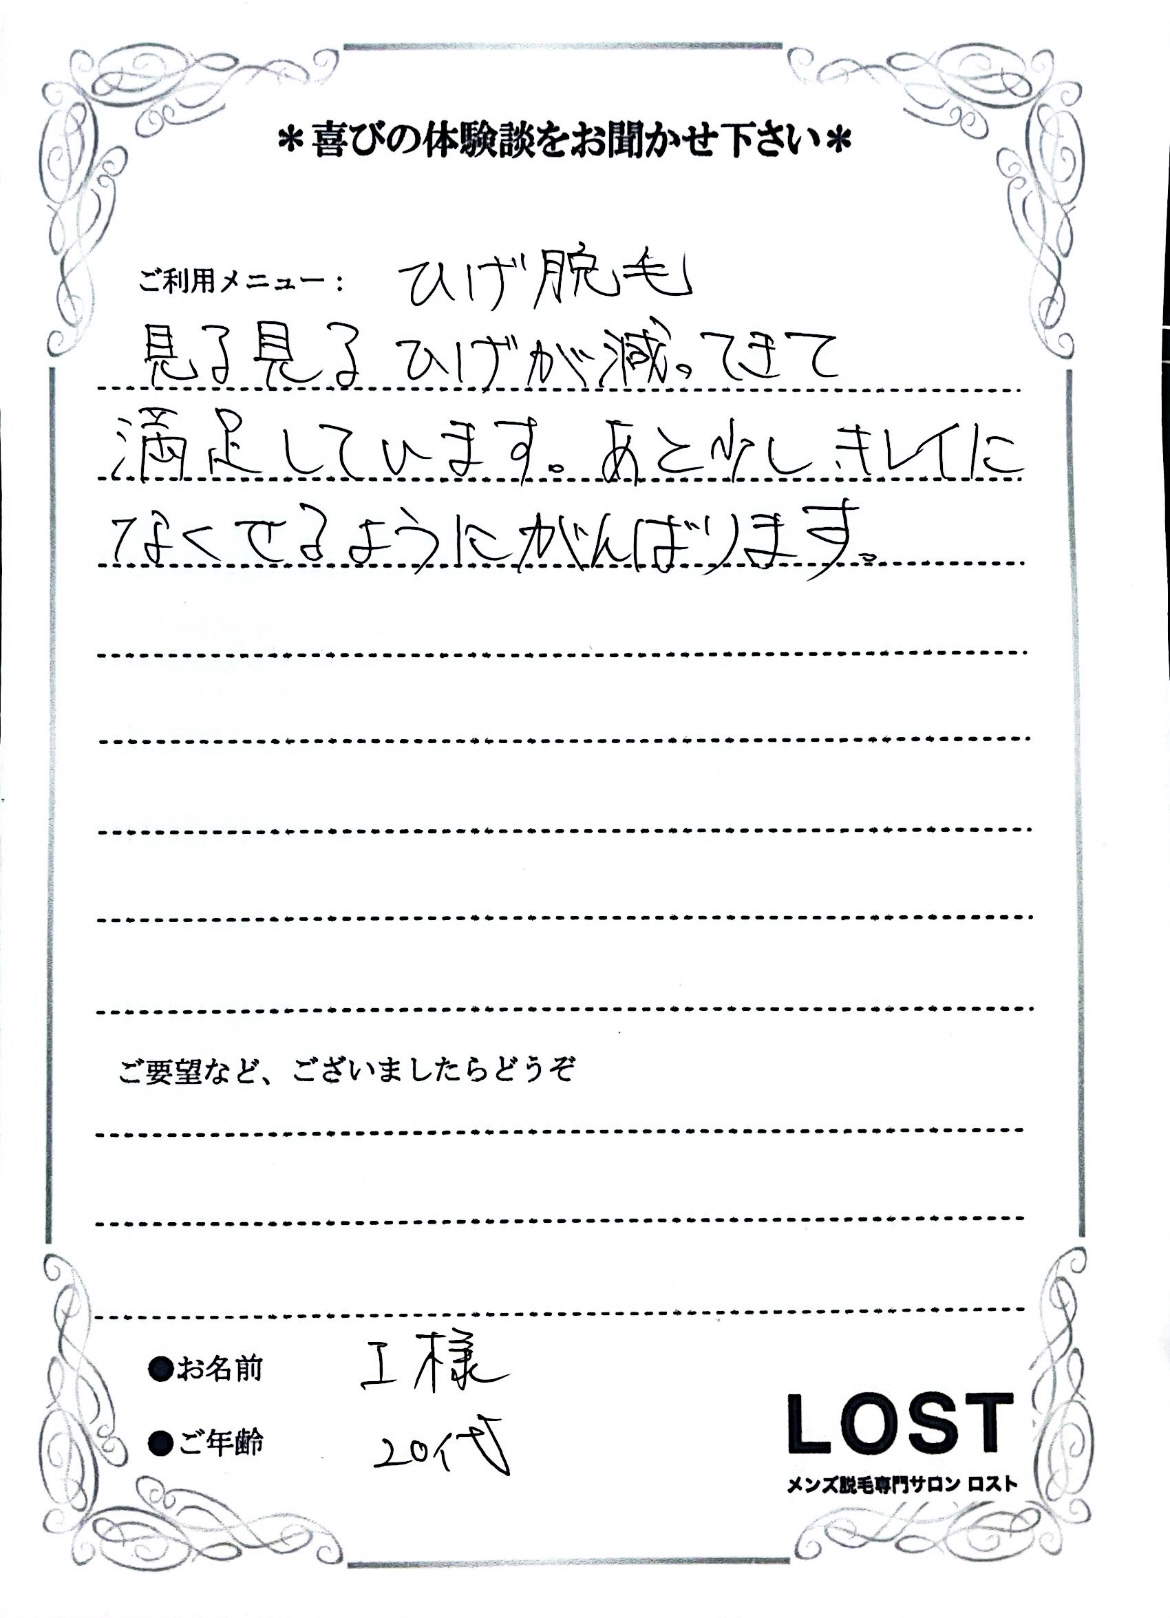 ＊喜びの体験談をお聞かせ下さい＊
ご利用メニュー： ひげ脱毛
見る見るひげが減ってきて
満足しています。あと少しキレイに
なくせるようにがんばります。
ご要望など、ございましたらどうぞ
●お名前 I様
●ご年齢 20代
LOST
メンズ脱毛専門サロン ロスト